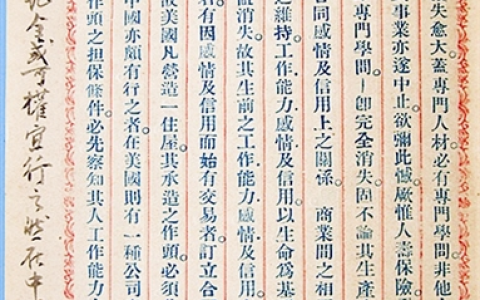 失愈大蓋專門人材必有專門學問非他
事業亦遂中止欲彌此憾厥惟人壽保險
專門學問一卽完全消失固不論其生產
合同感情及信用上之關係。商業間之相
之維持工作能力感情及信用以生命爲基
消失故其生前之工作能力感情及信用
有因感情及信用而始有交易者訂立合
故美國凡營造一住屋其承造之作頭必須
中國亦頗有行之者在美國則有一種公司
作頭之担保條件必先察知其人工作能力
金或可權宜行之然在中